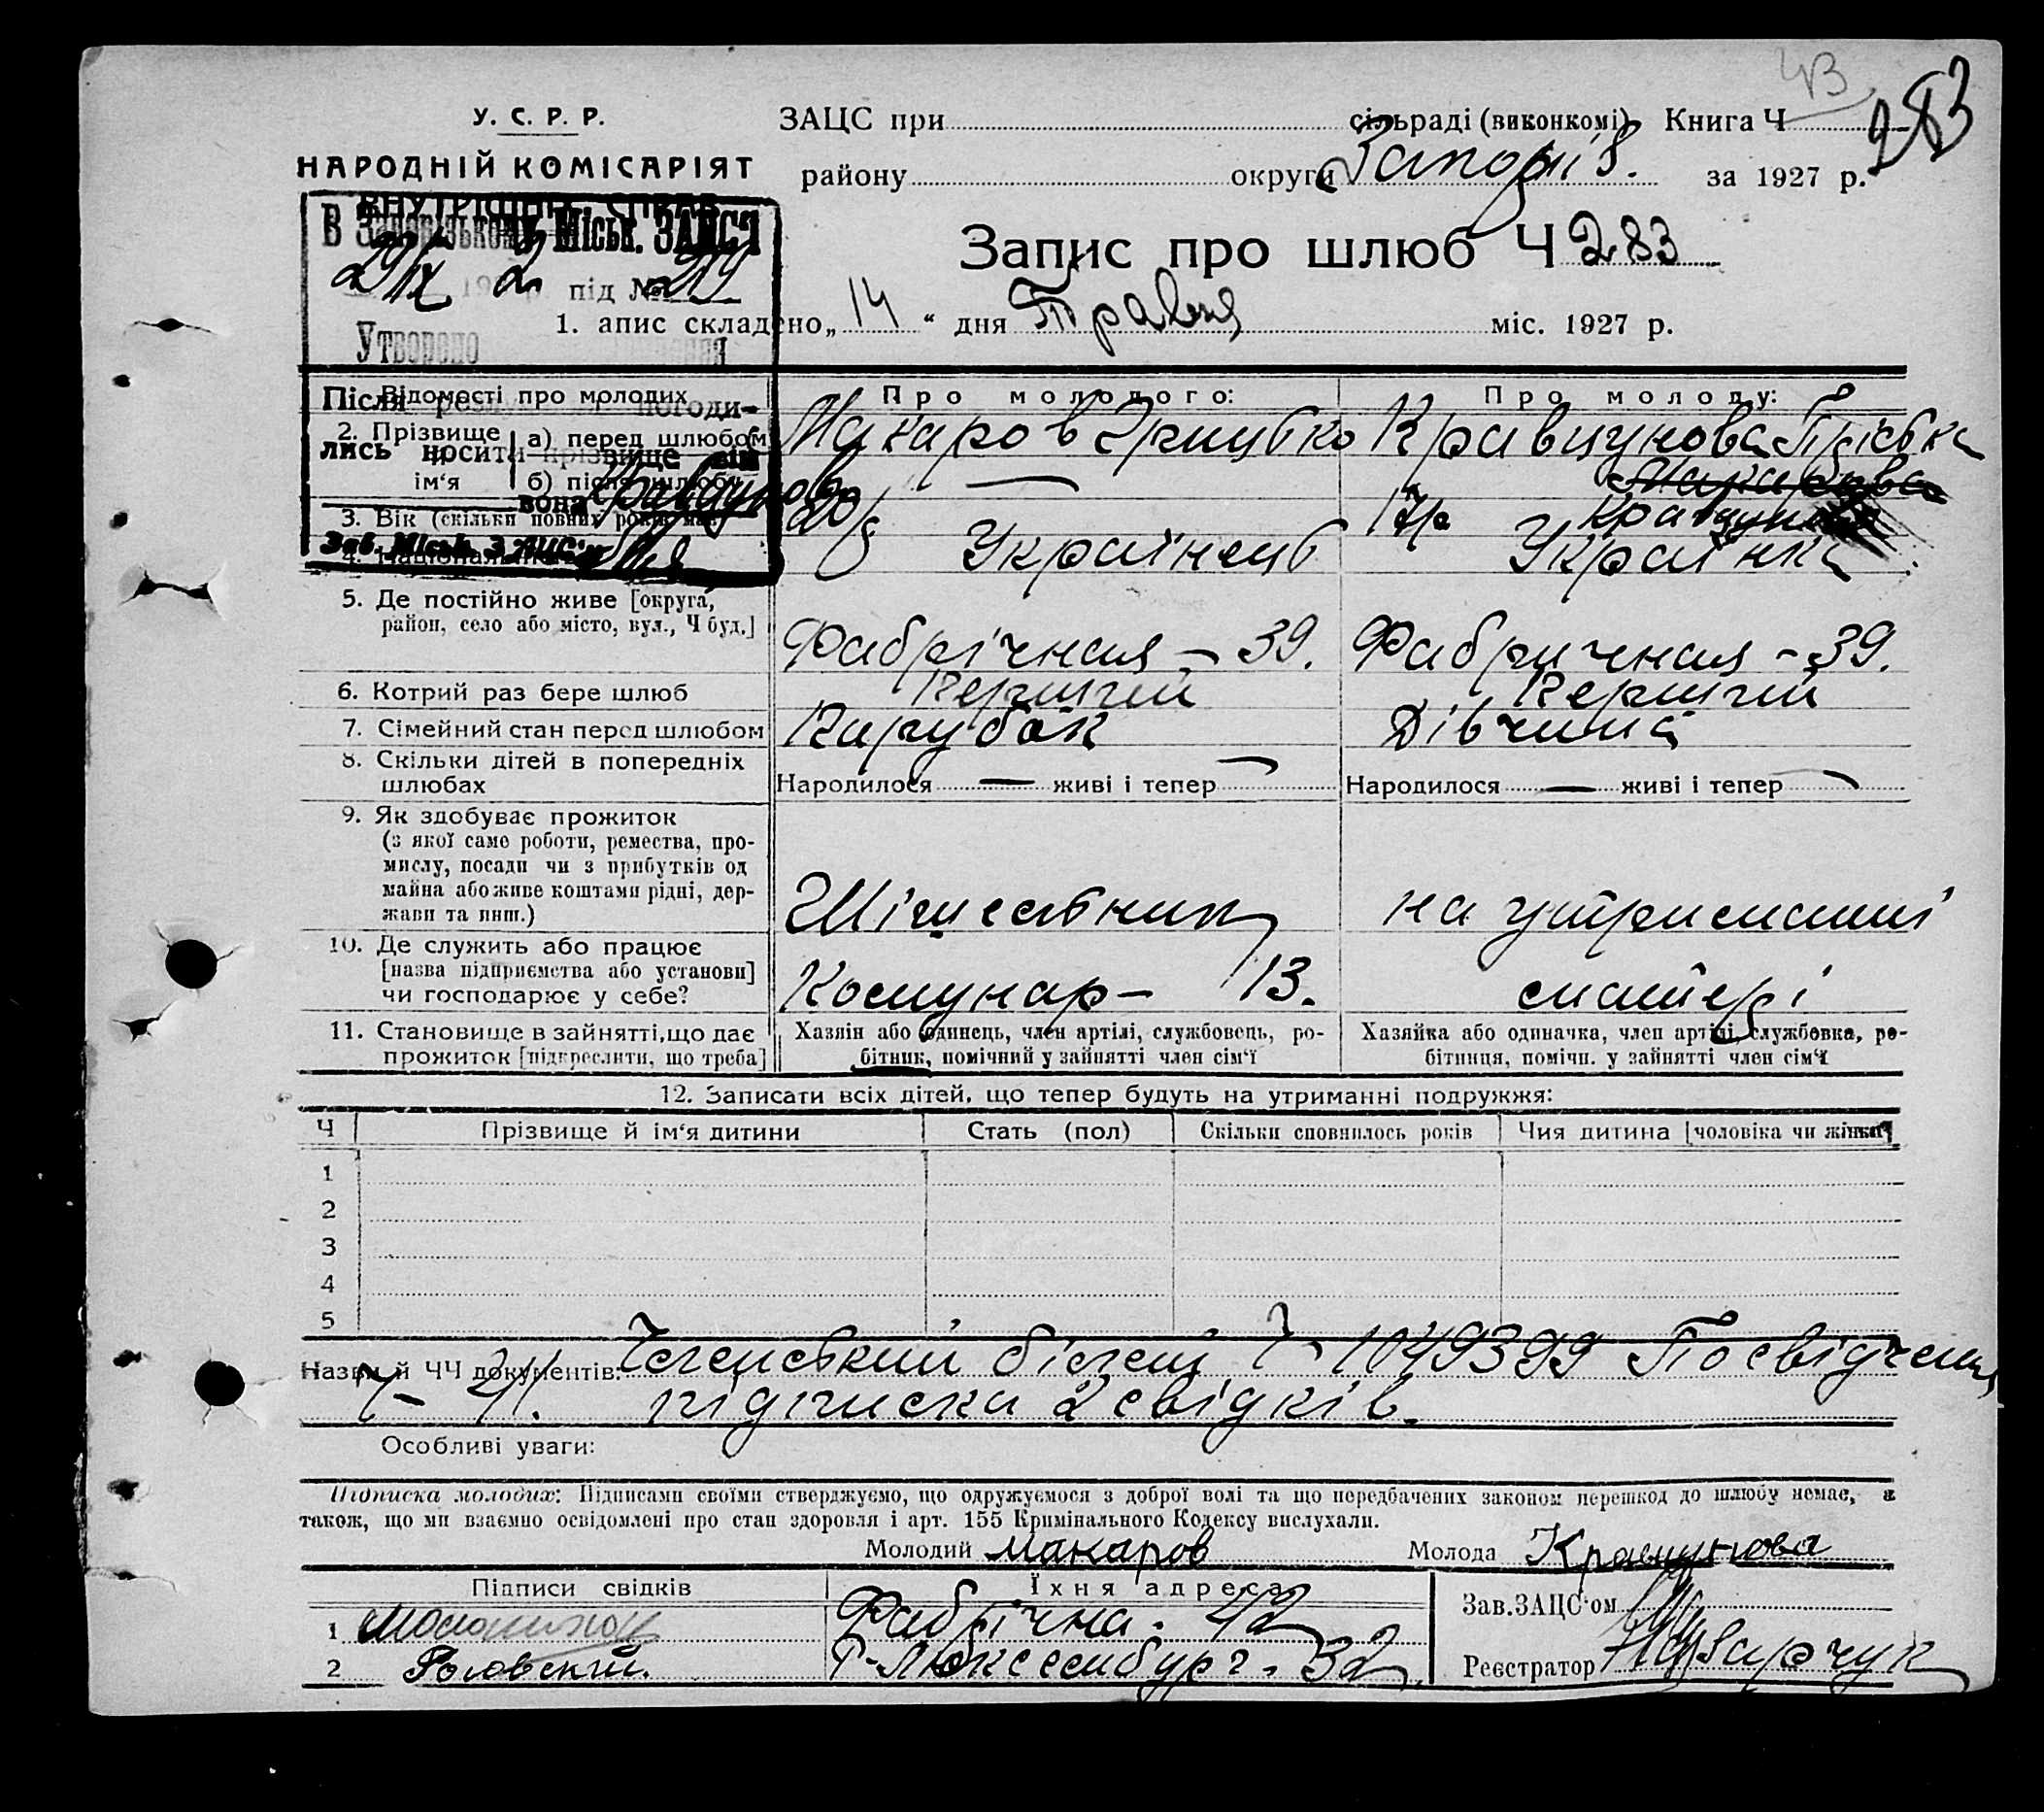 43
283
У. С. Р. Р.
НАРОДНІЙ КОМІСАРІЯТ
ВНУТРІШНІХ СПРАВ
ЗАЦС при сільраді (виконкомі) Книга Ч
району округи Запоріз. за 1927 р.
В Запорізькому Міськ. ЗАЦС'і
під №
Утворено
Після погоди-
лись носити прізвище він
вона Кравцунова
Зав. Міськ. ЗАЦС'у
Запис про шлюб Ч 283
1. апис складено „14“ дня Травня міс. 1927 р.
Відомості про молодих Про молодого: Про молоду:
2. Прізвище й ім‘я а) перед шлюбом Макаров Грицько Кравцунова Пріська
б) після шлюбу — Макарова
Кравцунова
3. Вік (скільки повних років має) 20 17
4. Українець Українка
5. Де постійно живе [округа,
район, село або місто, вул., Ч буд.] Фабрічная - 39. Фабричная - 39.
6. Котрий раз бере шлюб Перший Перший
7. Сімейний стан перед шлюбом Парубок Дівчина
8. Скільки дітей в попередніх
шлюбах Народилося — живі і тепер — Народилося — живі і тепер —
9. Як здобуває прожиток
(з якої саме роботи, ремества, про-
мислу, посади чи з прибутків од
майна або живе коштами рідні, дер-
жави та инш.) на утриманні
10. Де служить або працює
[назва підприємства або установи]
чи господарює у себе? Комунар - 13. матері
11. Становище в зайнятті, що дає
прожиток [підкреслити, що треба]
Хазяїн або одинець, член артілі, службовець, ро-
бітник, помічний у зайнятті член сім‘ї
Хазяйка або одиначка, член артілі, службовка, ро-
бітниця, помічн. у зайнятті член сім‘ї
12. Записати всіх дітей, що тепер будуть на утриманні подружжя:
Ч Прізвище й ім‘я дитини Стать (пол) Скільки сповнилось років Чия дитина [чоловіка чи жінки]
1
2
3
4
5
Назви й ЧЧ документів: Членський білет Ч 1049399 Посвідчення
Ч - 41. підписка 2 свідків.
Особливі уваги:
Підписка молодих: Підписами своїми стверджуємо, що одружуємося з доброї волі та що передбачених законом перешкод до шлюбу немає, а
також, що ми взаємно освідомлені про стан здоровля і арт. 155 Кримінального Кодексу вислухали.
Молодий Макаров Молода Кравцунова
Підписи свідків Їхня адреса
1 Фабрічна - 42
2 Роговский. Р-Люксембург - 32
Зав. ЗАЦС‘ом
Реєстратор